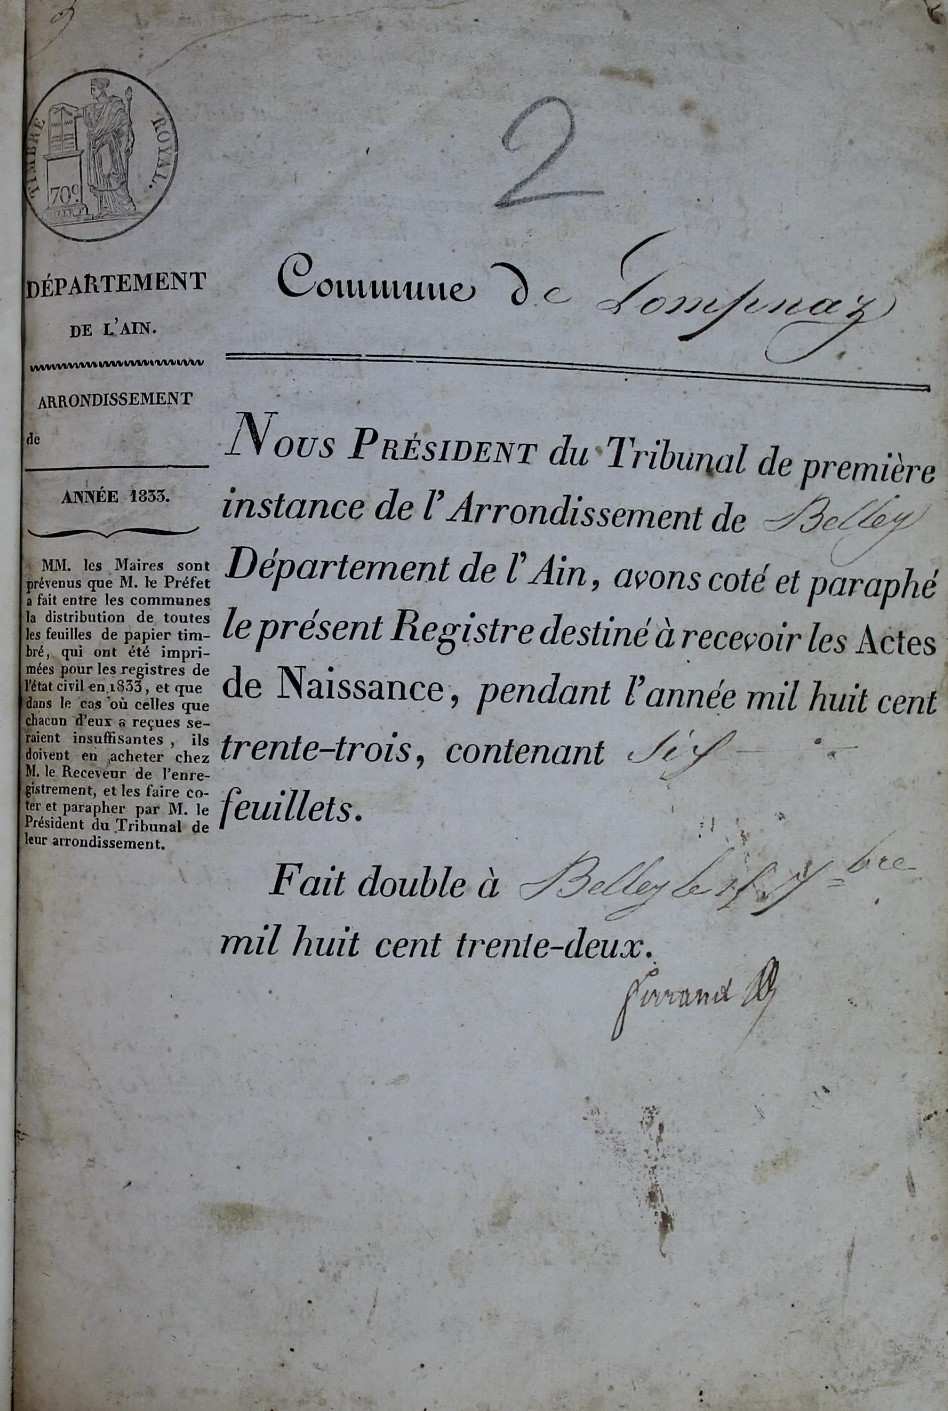 TIMBRE ROYAL.
70c
2
DÉPARTEMENT
DE L'AIN.
ARRONDISSEMENT
de
ANNÉE 1833.
MM. les Maires sont
prévenus que M. le Préfet
a fait entre les communes
la distribution de toutes
les feuilles de papier tim-
bré, qui ont été impri-
mées pour les registres de
l'état civil en 1833, et que
dans le cas où celles que
chacun d'eux a reçues se-
raient insuffisantes, ils
doivent en acheter chez
M. le Receveur de l'enre-
gistrement, et les faire co-
ter et parapher par M. le
Président du Tribunal de
leur arrondissement.
Commune de Lompnaz
NOUS PRÉSIDENT du Tribunal de première
instance de l'Arrondissement de Belley
Département de l'Ain, avons coté et paraphé
le présent Registre destiné à recevoir les Actes
de Naissance, pendant l'année mil huit cent
trente-trois, contenant six
feuillets.
Fait double à Belley le bre
mil huit cent trente-deux.